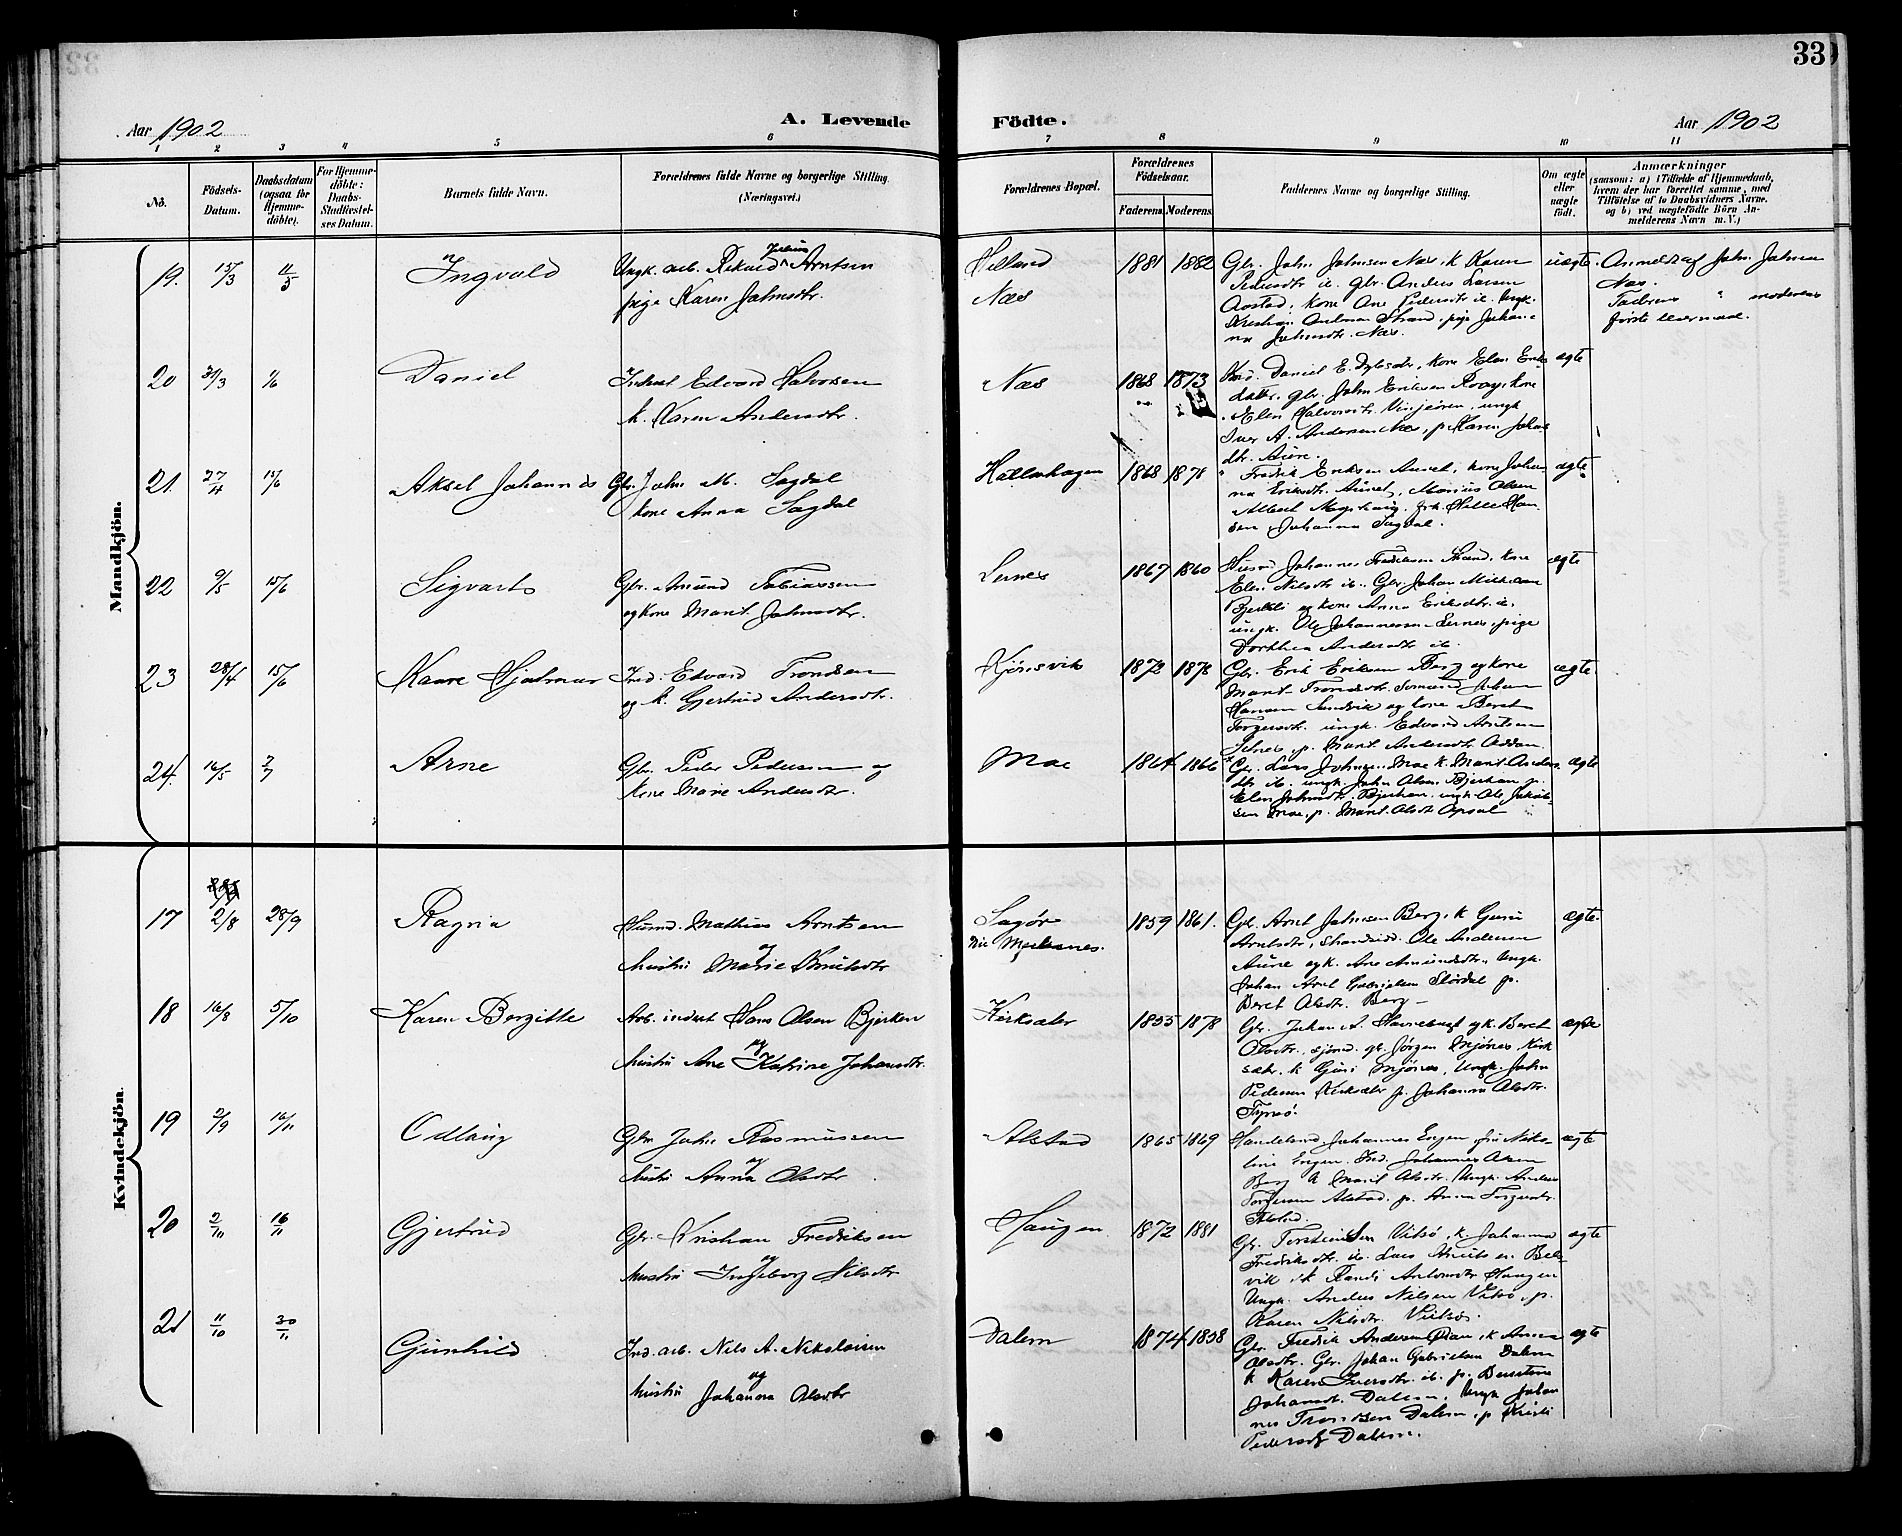 33
Aar 1902
A. Levende Födte.
Aar 1902
1 2 3 4 5 6 7 8 9 10 11
No.
Födsels-Datum.
Daabsdatum (ogsaa for Hjemme-döbte).
For Hjemme-döbte: Daabs-Stadfæstel-ses Datum.
Barnets fulde Navn.
Forældrenes fulde Navne og borgerlige Stilling. (Næringsvei.)
Forældrenes Bopæl.
Forældrenes Födselsaar.
Faderens Moderens
Faddernes Navne og borgerlige Stilling.
Om ægte eller uægte födt.
Anmærkninger
(saasom: a) i Tilfælde af Hjemmedaab, hvem der har forrettet samme, med Tilföielse af to Daabsvidners Navne. og b) ved uægtefödte Börn An-melderens Navn m. V.)
Mandkjön.
19. 15/3 11/5 Ingvald
Ungk. arb. Rikard Julius Arntsen
pige Karen Johnsdtr.
Næs
1881 1882
Gbr. John Johnsen Næs, k. Karen
Pedersdtr ib. gbr. Anders Larsen
kone Ane Pedersdtr ib. Ungk.
Strand, pige Johan-
na Johnsdtr. Næs.
uægte.
Anmeldt af John Johnsen
Næs.
Faderens " moderens
første leiermaal.
20 31/3 1/6 Daniel
Inderst Edvard Halvorsen
k. Karen Andersdtr.
Næs
1868 1873
Daniel E. kone Elen Eriks
datter. gbr. John Eriksen kone
Elen Halvorsdtr. Vinjeören, ungk.
Iver A. Andersen Næs, p. Karen Johns
dtr. Aüre.
ægte
21. 27/4 15/6 Aksel Johannes
Gbr. John M. Sagdal
kone Anna Sagdal
1868 1878
Fredrik Eriksen Aunet, kone Johan
na Eriksdtr. Aunet, Marius Olsen
Albert
sen, Johanna Sagdal.
ægte
22 9/5 15/6 Sigvart
Gbr. Amund Tobiassen
og kone Marit Johnsdtr.
Lernes
1867 1860
Husmd. Johannes Fredriksen Strand, kone
Elen Nilsdtr ib. Gbr. Johan Mikkelsen
Bjerkli og kone Anna Eriksdtr. ib.
ungk. Ole Johannessen Lernes, pige
Dorthea Andersdtr ib.
ægte
23 28/4 15/6 Kaare Hjalmar
Ind. Edvard Trondsen
og k. Gjertrud Andersdtr.
Kjörsvik
1873 1878
Gbr. Erik Eriksen Berg og kone
Marit Trondsdtr. Johan
Hansen Sundvik og kone Beret
Torgersdtr. ungk. Edvard Arntsen
p. Marit Andersdtr.
ægte.
24. 16/5 2/7 Arne
Gbr. Peder Pedersen og
kone Marie Andersdtr.
Moe
1864 1866
Gbr. Lars Johnsen Moe k. Marit Anders
dtr ib. ungk. John Olsen Bjerkan p.
Elen Johnsdtr. Bjerkan, ungk. Ole Jakob-
sen Moe, p. Marit Olsdtr
ægte
Kvindekjön.
17 2/8 28/9 Ragna
Husmd. Mathias Arntsen
og
hustru Marie Knutsdtr
Sagör
1859 1861.
Gbr. Arnt Johnsen Berg, k. Guru
Arntsdtr, Ole Andersen
Aüre og k. Ane Amundsdtr, Ungk.
Johan Arnt Gabrielsen Stördal p.
Beret Olsdtr. Berg
ægte.
18 16/8 5/10 Karen Bergitte
Arb. inderst Hans Olsen Bjerken
og
hustru Ane Katrine Johansdtr.
Kirksæter
1855 1878
Gbr. Johan A. og k. Beret
Olsdtr., Jörgen Mjönes, Kirk
sætr. k. Guri Mjönes, Ungk. John
Pedersen Kirksæter p. Johanna Olsdtr.
ægte
19 2/9 16/11 Odlaug
Gbr John Rasmussen
og
hustru Anna Olsdtr
Alstad
1865 1869
Handelsmd. Johannes Engen, fru Niko-
line Engen. Ind. Johannes Olsen
Berg k Marit Olsdtr. Ungk. Anders
Torgersen Alstad. p. Anna Torgersdtr.
Alstad.
ægte
20 2/10 16/11 Gjertrud
Gbr. Kristian Fredriksen
og
hustru Ingeborg Nilsdtr
Haugen
1872 1881
Gbr. Torstein Vitsö, k. Johanna
Fredriksdtr ib. Lars Arntsen Bels-
vik, k. Randi Antonsdtr Haugen
Ungk. Anders Nilsen Vitsö, p.
Karen Nilsdtr. Vitsö.
ægte
21 11/10 30/11 Gunhild
Ind. arb. Nils A. Nikolaisen
og
hustru Johanna Olsdtr
Dalem
1874 1858
Gbr. Fredrik Andersen k. Anna
Olsdtr. Gbr. Johan Gabrielsen Dalem
k Karen Iversdtr. ib. p. Berntine
Johansdtr. Dalem, Ungk. Johan
nes Trondsen Dalem, p Kristi
Pedersdtr Dalem.
ægte